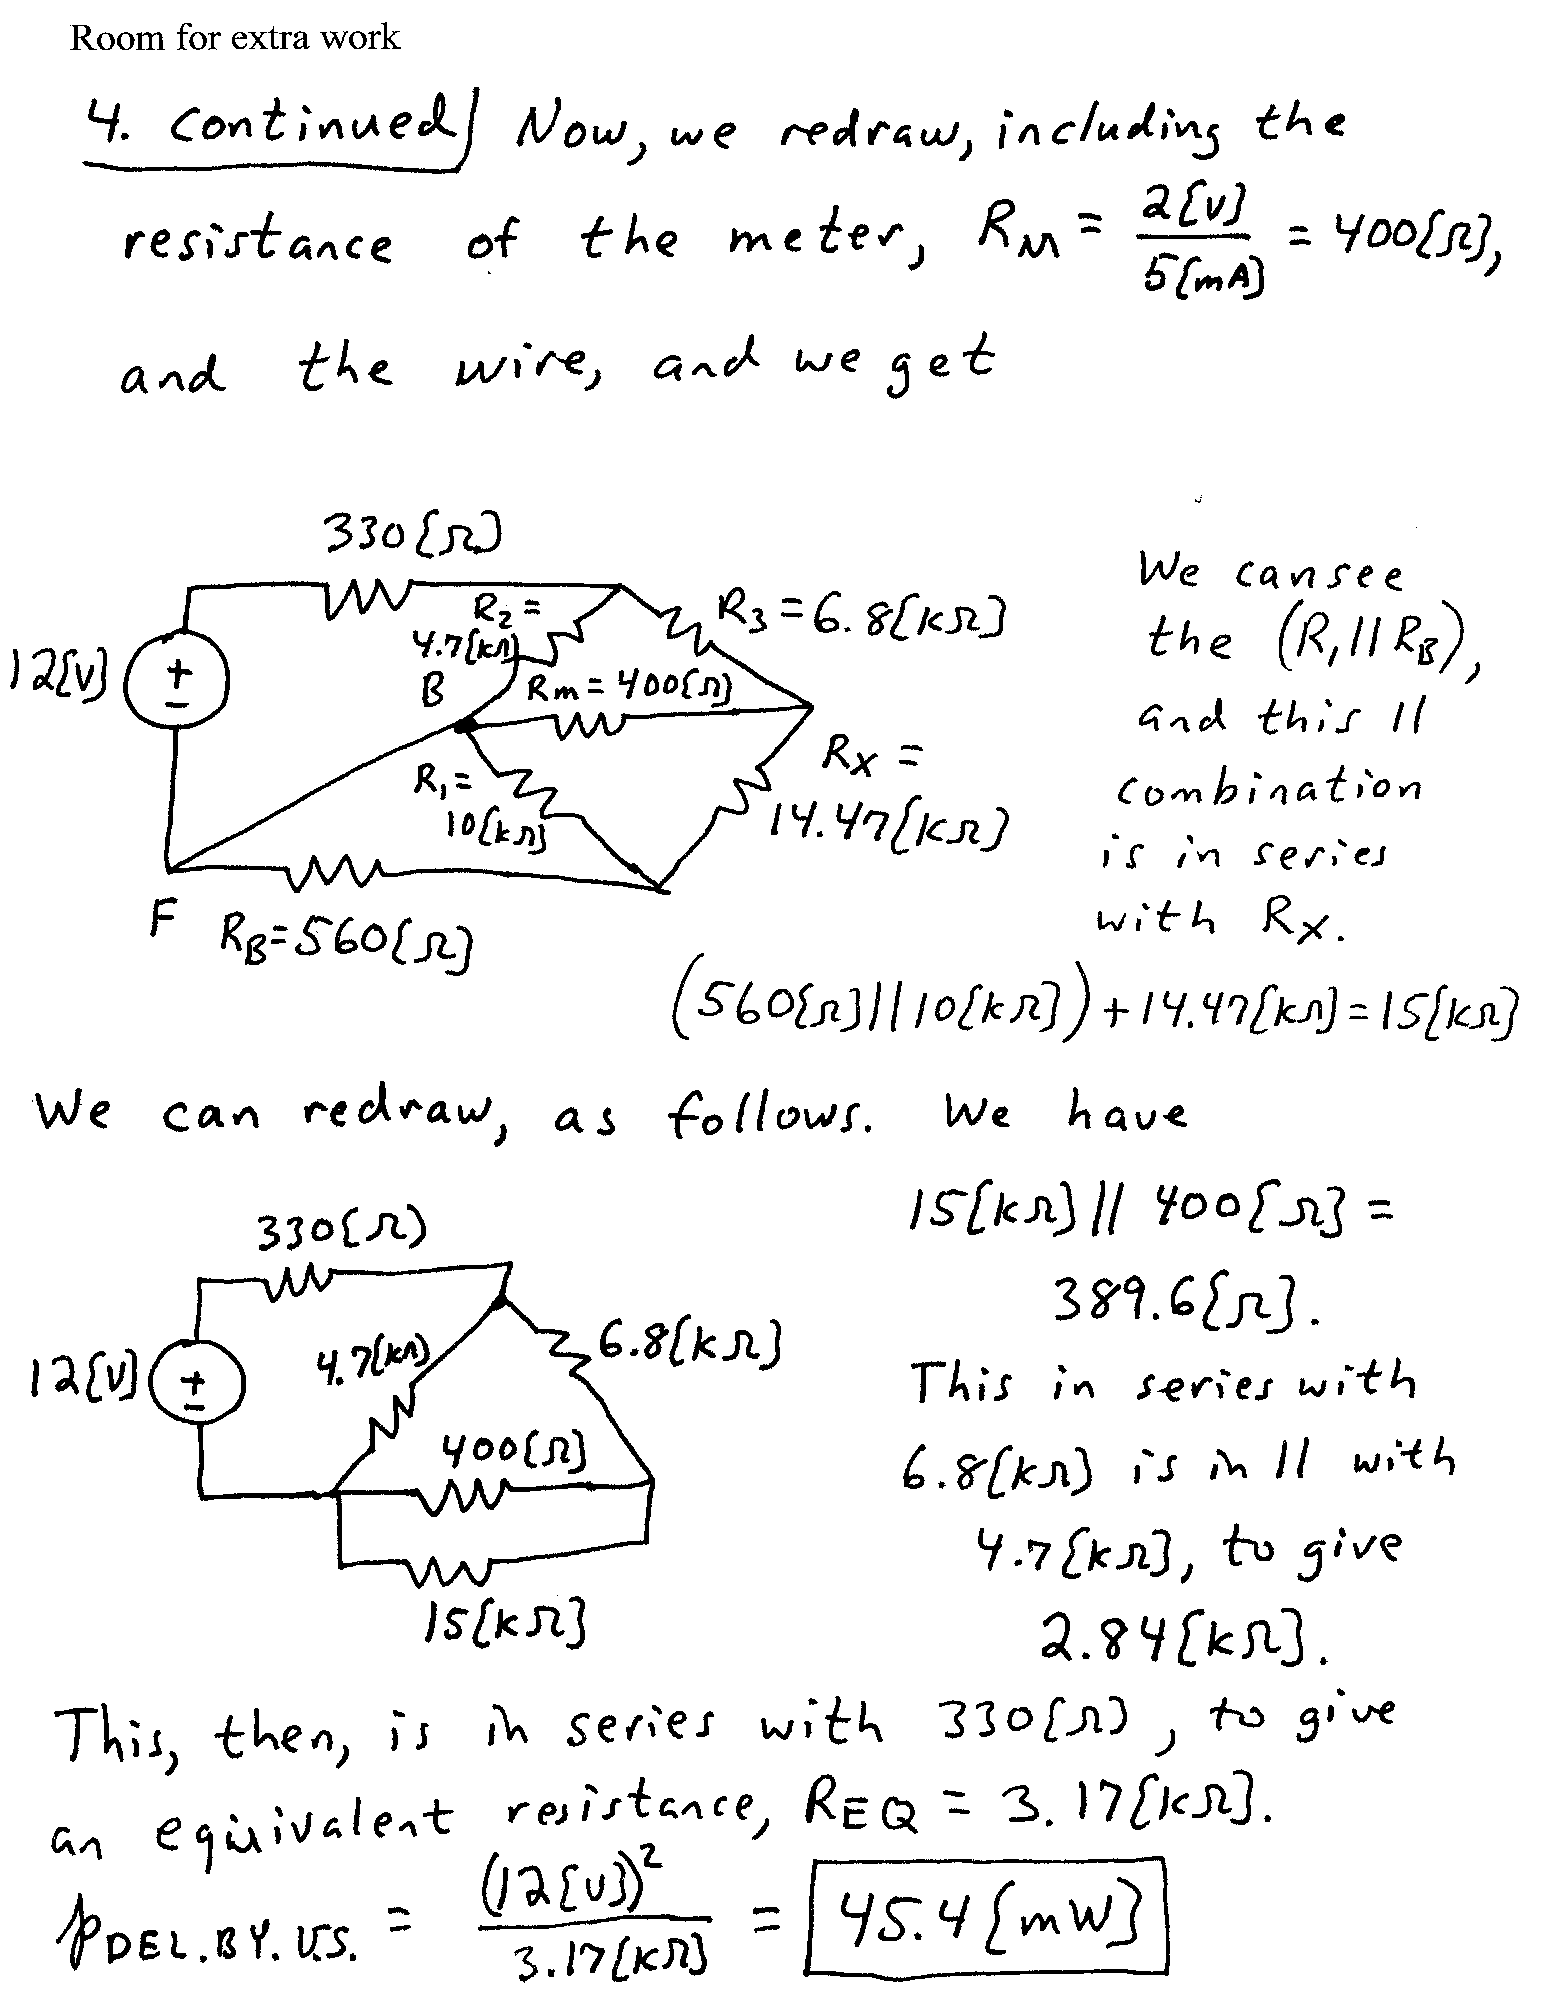 Room for extra work
4. continued Now, we redraw, including the
resistance of the meter, RM = 2[V] / 5[mA] = 400[Ω],
and the wire, and we get
330[Ω]
R2 =
4.7[kΩ]
R3 = 6.8[kΩ]
12[V]
+
-
B
Rm = 400[Ω]
R1 =
10[kΩ]
RX =
14.47[kΩ]
F
RB = 560[Ω]
We can see
the (R1 || RB),
and this ||
combination
is in series
with RX.
(560[Ω] || 10[kΩ]) + 14.47[kΩ] = 15[kΩ]
We can redraw, as follows. We have
330[Ω]
12[V]
+
-
4.7[kΩ]
6.8[kΩ]
400[Ω]
15[kΩ]
15[kΩ] || 400[Ω] =
389.6[Ω].
This in series with
6.8[kΩ] is in || with
4.7[kΩ], to give
2.84[kΩ].
This, then, is in series with 330[Ω], to give
an equivalent resistance, REQ = 3.17[kΩ].
pDEL.BY.V.S. = (12[V])² / 3.17[kΩ] = 45.4[mW]